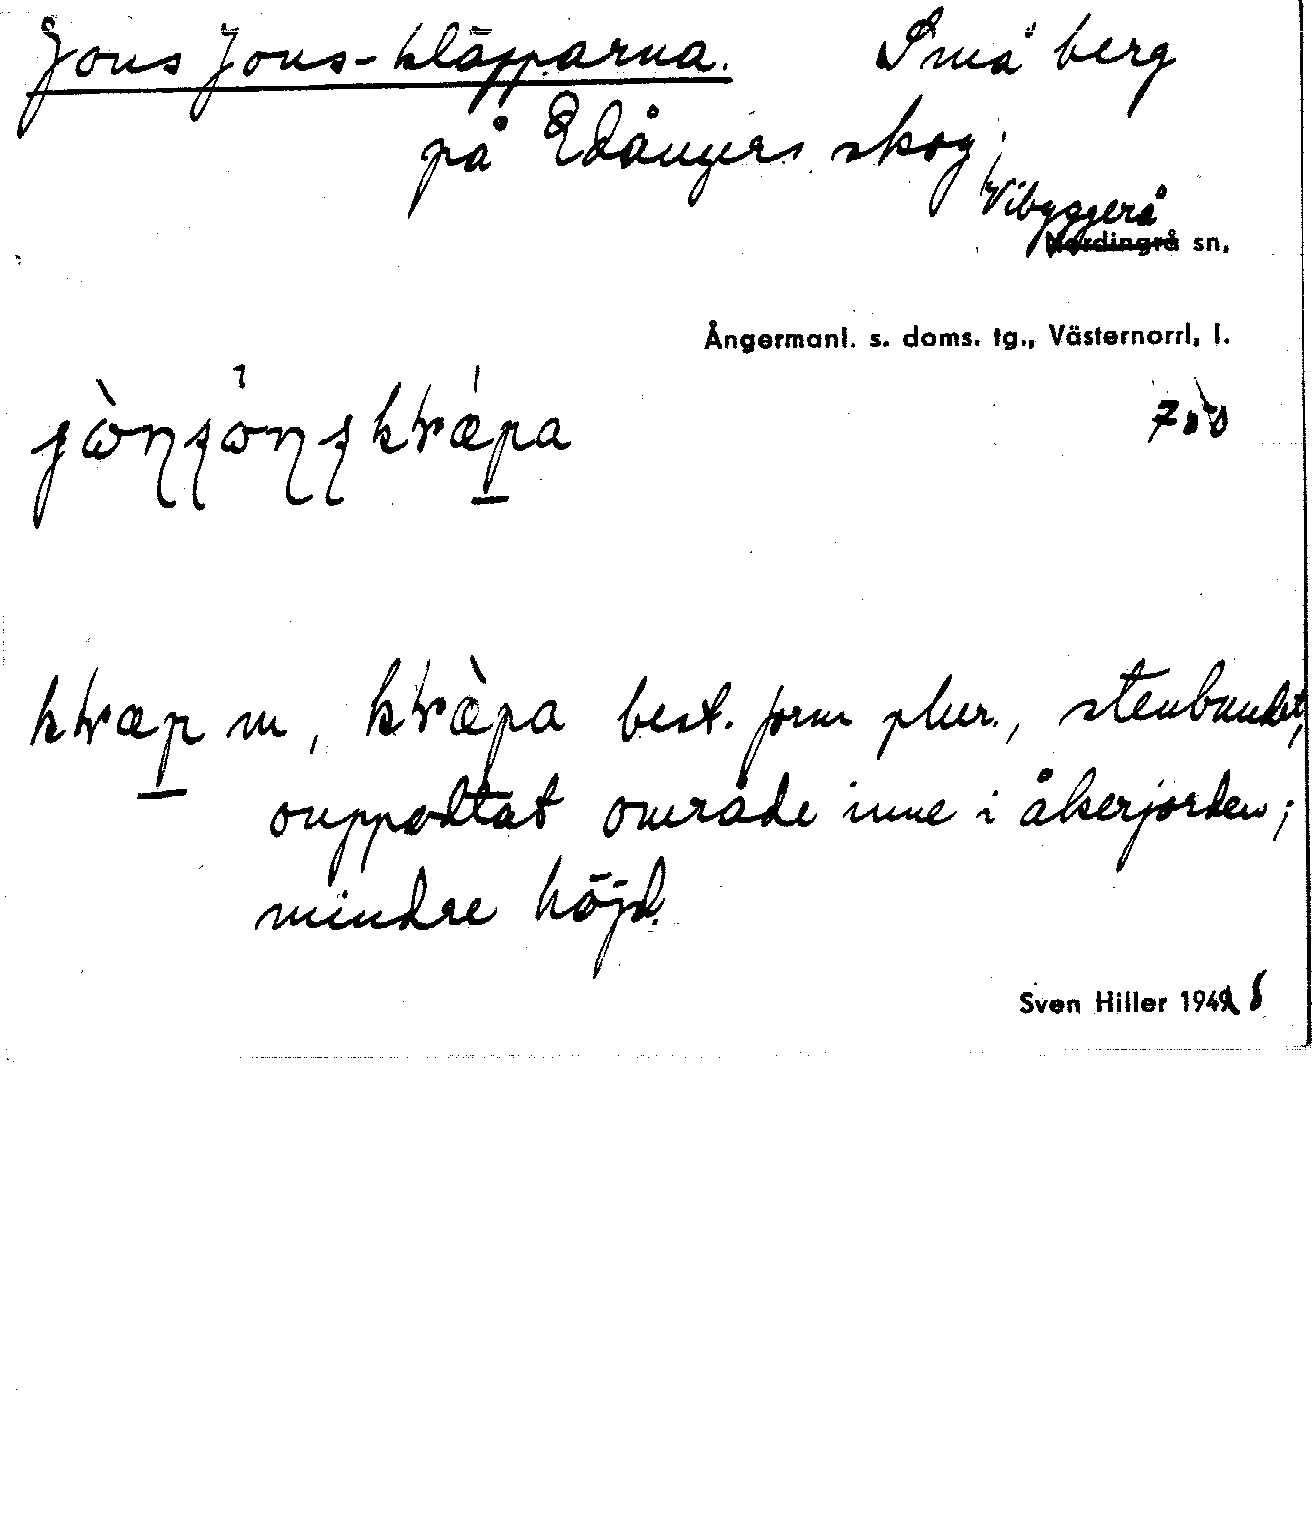 Jons Jons-kläpparna. Små berg
på Edångers skog,
Vibyggerå
Nordingrå sn,
Ångermanl. s. doms. tg., Västernorrl, l.
best. form plur., stenbundet,
ouppodlat område inne i åkerjorden;
mindre höjd.
Sven Hiller 194 8